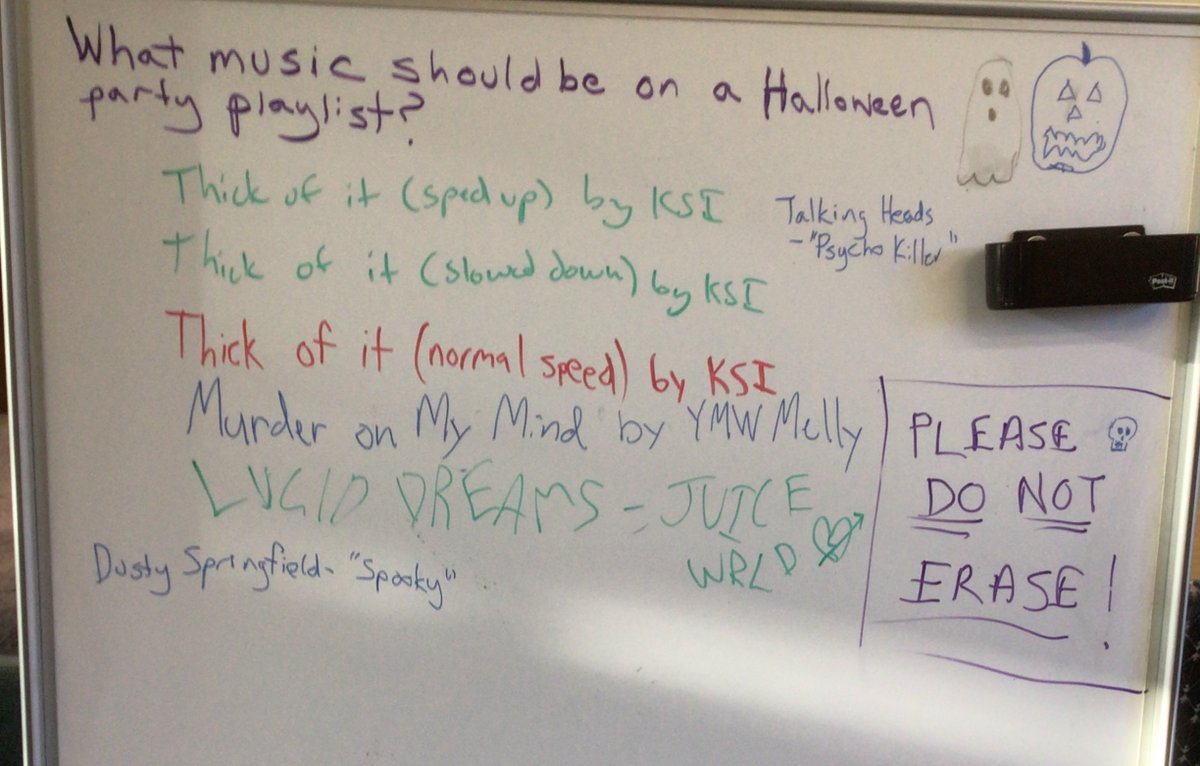 What music should be on a Halloween
party playlist?
Thick of it (sped up) by KSI
Talking Heads
- "Psycho Killer"
Thick of it (slowed down) by KSI
Post-it
Thick of it (normal speed) by KSI
Murder on My Mind by YMW Melly
LUCID DREAMS - JUICE
WRLD
Dusty Springfield - "Spooky"
PLEASE
DO NOT
ERASE!